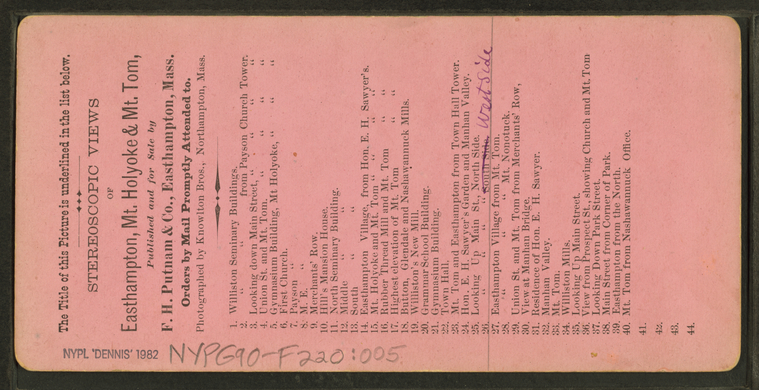 The Title of this Picture is underlined in the list below.
STEREOSCOPIC VIEWS
OF
Easthampton, Mt. Holyoke & Mt. Tom,
Published and for Sale by
F. H. Putnam & Co., Easthampton, Mass.
Orders by Mail Promptly Attended to.
Photographed by Knowlton Bros., Northampton, Mass.
1. Williston Seminary Buildings.
2. " " from Payson Church Tower.
3. Looking down Main Street, " "
4. Union St. and Mt. Tom, " "
5. Gymnasium Building, Mt Holyoke, " "
6. First Church.
7. Payson "
8. M. E. "
9. Merchants' Row.
10. Hill's Mansion House.
11. North Seminary Building.
12. Middle " "
13. South " "
14. Easthampton Village, from Hon. E. H. Sawyer's.
15. Mt. Holyoke and Mt. Tom " "
16. Rubber Thread Mill and Mt. Tom " "
17. Highest elevation of Mt. Tom " "
18. Button, Glendale and Nashawannuck Mills.
19. Williston's New Mill.
20. Grammar School Building.
21. Gymnasium Building.
22. Town Hall.
23. Mt. Tom and Easthampton from Town Hall Tower.
24. Hon. E. H. Sawyer's Garden and Manhan Valley.
25. Looking Up Main St., North Side.
26. " " " South Side. West Side
27. Easthampton Village from Mt. Tom.
28. " " " Mt. Nonotuck.
29. Union St. and Mt. Tom from Merchants' Row,
30. View at Manhan Bridge.
31. Residence of Hon. E. H. Sawyer.
32. Manhan Valley.
33. Mt. Tom.
34. Williston Mills.
35. Looking Up Main Street.
36. View from Prospect St., showing Church and Mt. Tom
37. Looking Down Park Street.
38. Main Street from Corner of Park.
39. Easthampton from the North.
40. Mt. Tom from Nashawannuck Office.
41.
42.
43.
44.
NYPL 'DENNIS' 1982 NYPG90-F220:005